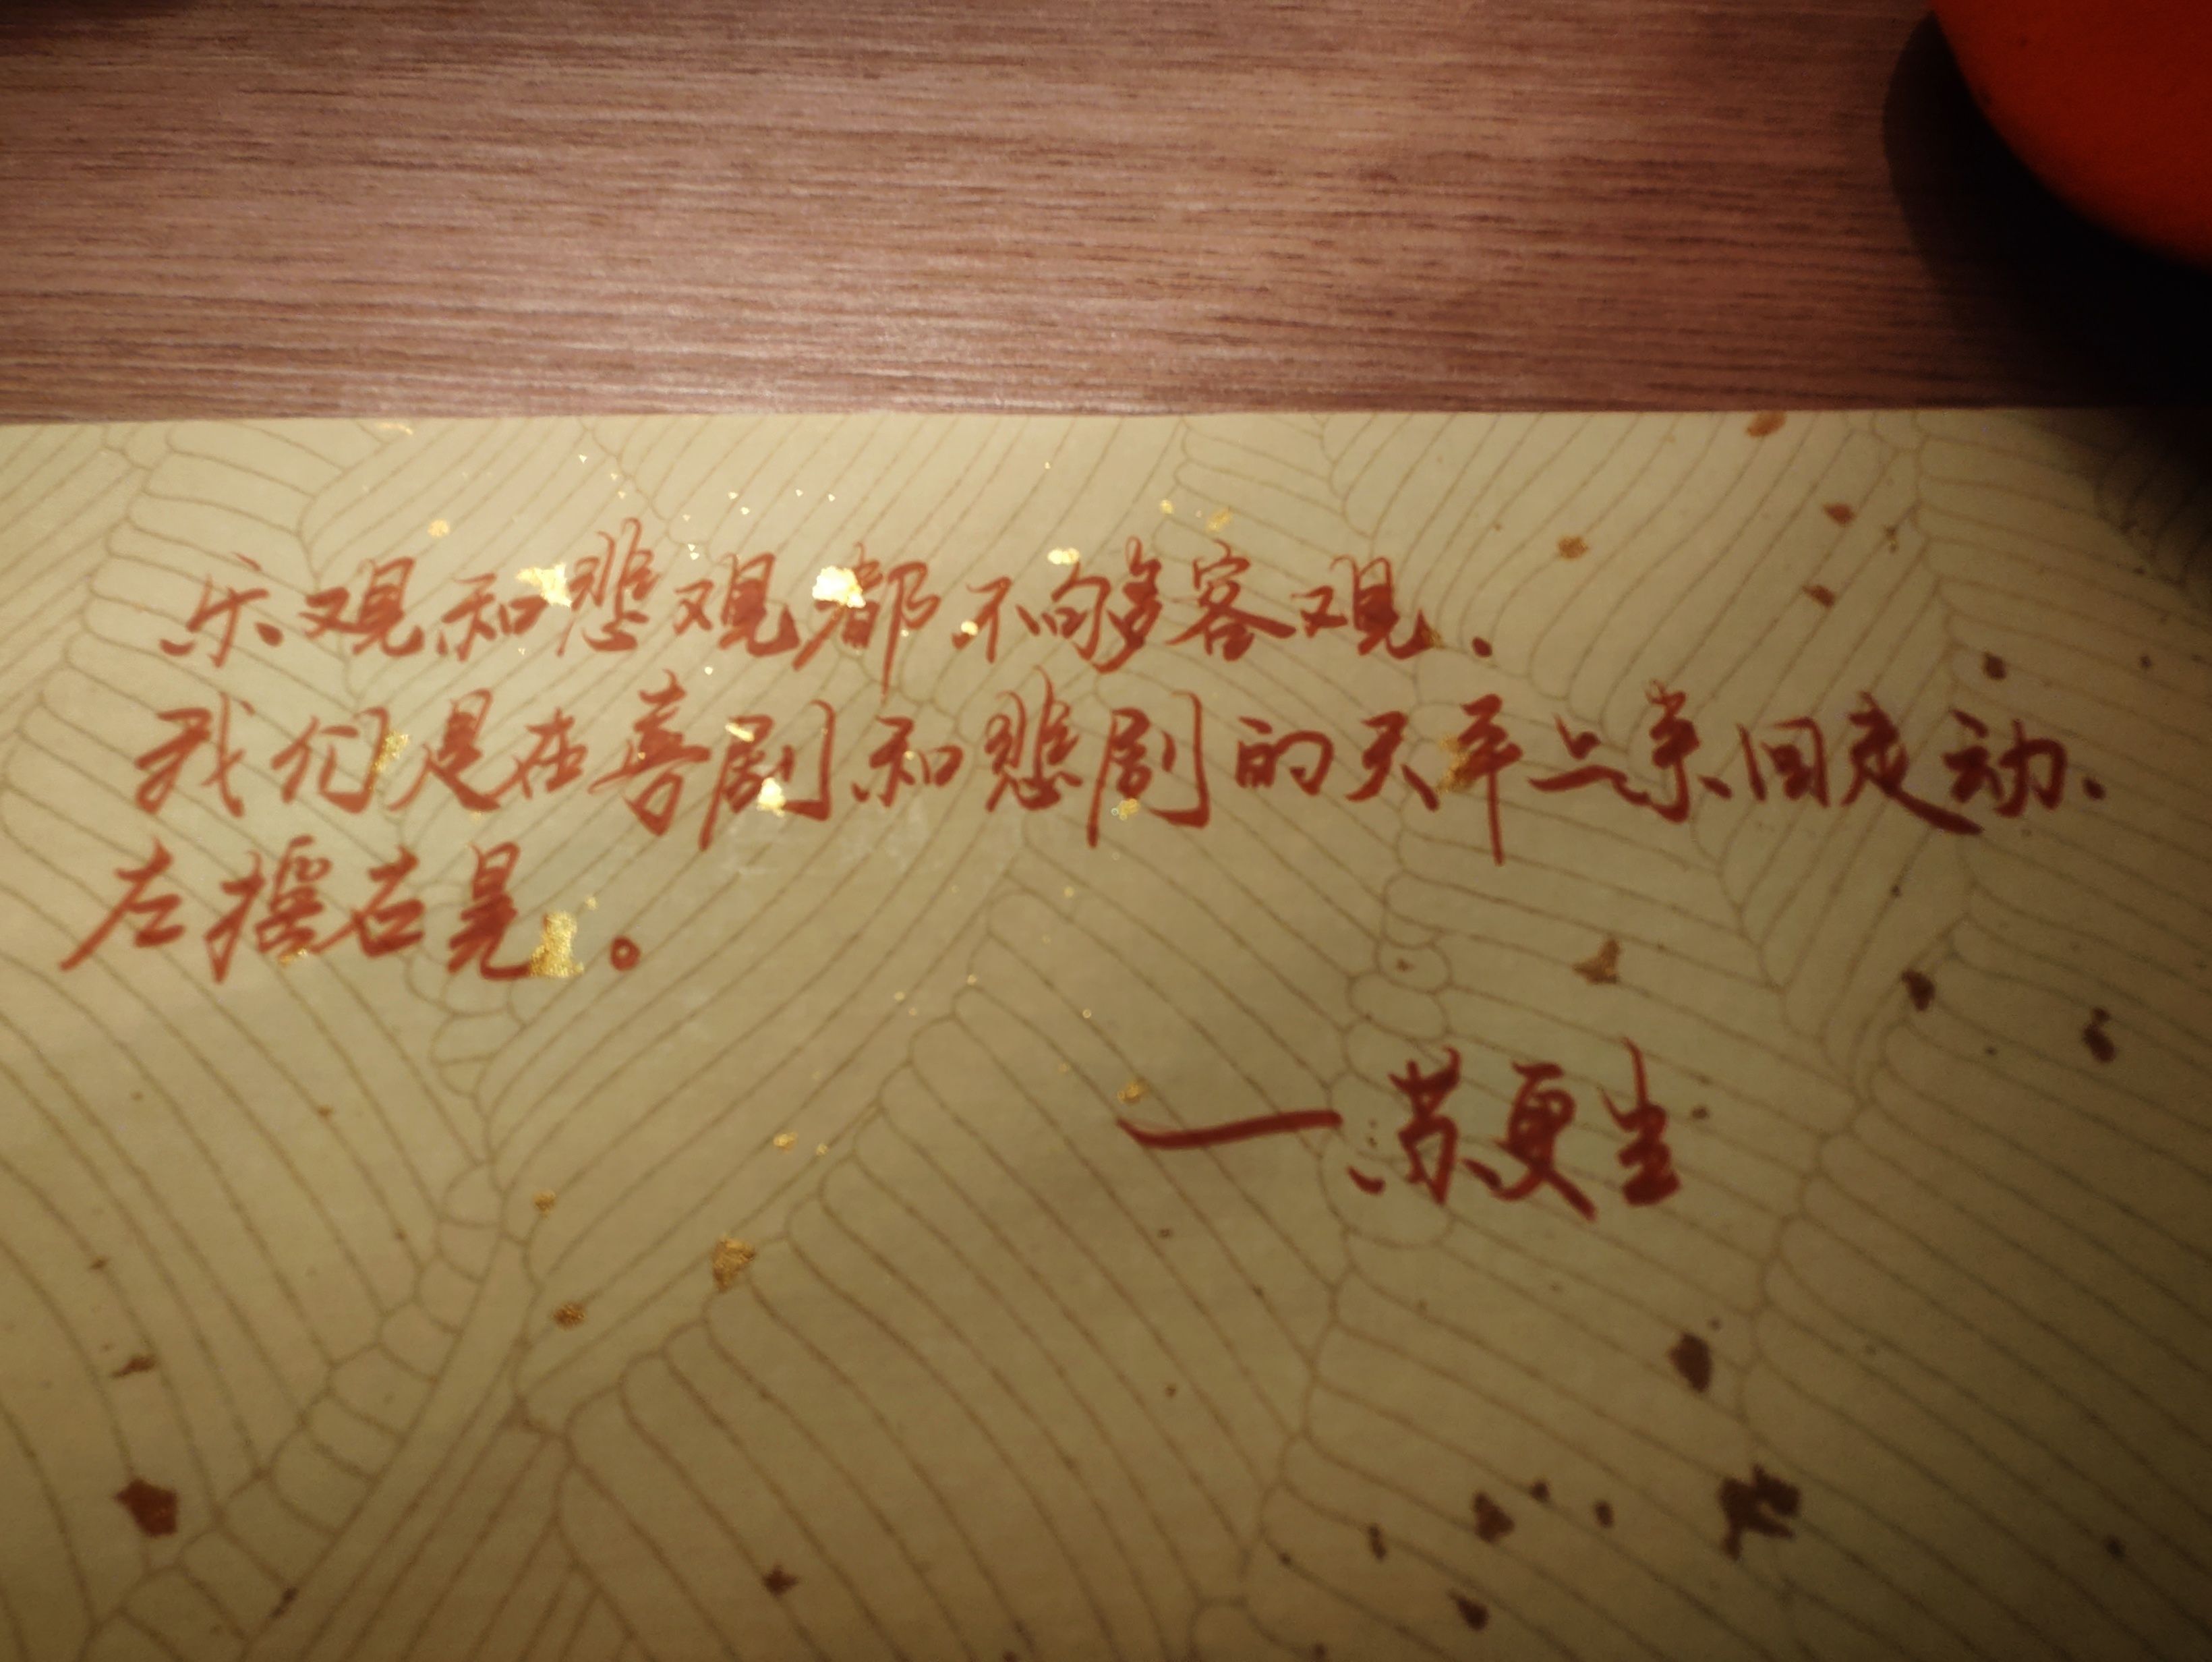 乐观和悲观都不够客观、
我们是在喜剧和悲剧的天平上来回走动、
左摇右晃。
一苏更生